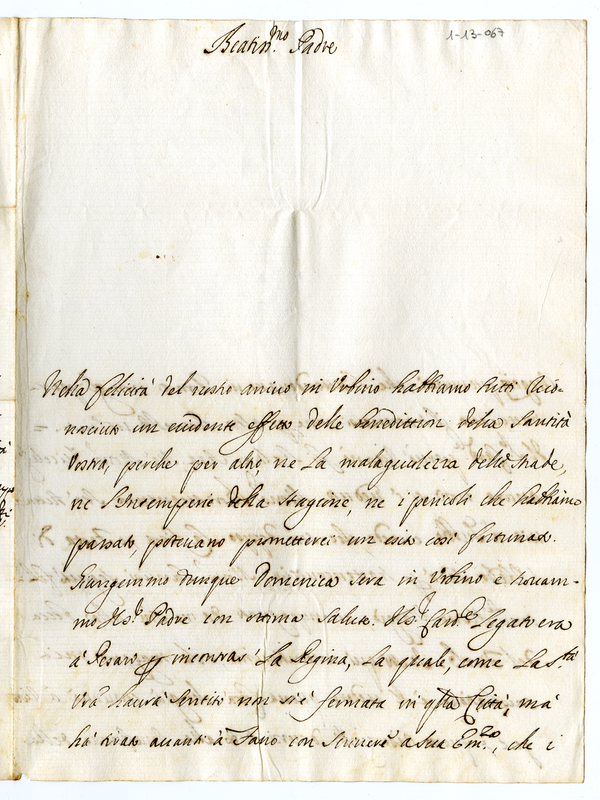 1-13-067
Beatis.mo Padre
Nella felicità del nostro arrivo in Urbino habbiamo tutti rico-
nosciuto un evidente effetto delle benedittion della Santità
Vostra, perche per altro, ne la malagevolezza delle strade,
ne l'intemperie della stagione, ne i pericoli che habbiamo
passato, potevano prometterci un esito così fortunato.
Giungemmo dunque Domenica sera in Urbino e trovam-
mo il S.r Padre con ottima salute. Il S.r Card.e Legato era
à Pesaro p incontrar la Regina, la quale, come la S.tà
Vrã haverà sentito non si è fermata in qlla Città, mà
hà tirato avanti à Fano con scrivere a Sua Em.za, che i